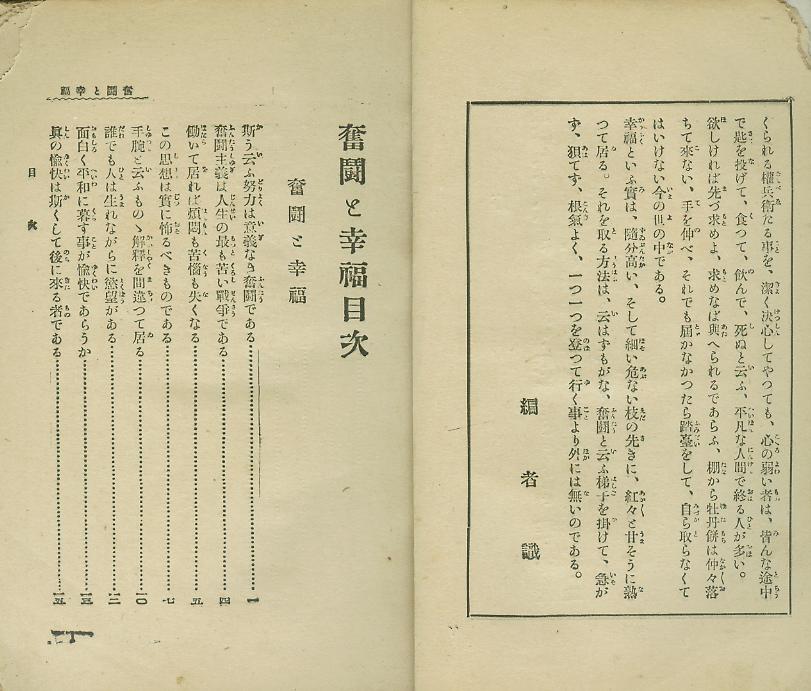 くられる權兵衞たる事を、潔く決心してやつても、心の弱い者は、皆んな途中
で匙を投げて、食つて、飮んで、死ぬと云ふ、平凡な人間で終る人が多い。
欲しければ先づ求めよ、求めなば與へられるであらふ、棚から牡丹餠は仲々落
ちて來ない、手を伸べ、それでも屆かなかつたら踏臺をして、自ら取らなくて
はいけない今の世の中である。
幸福といふ實は、隨分高い、そして細い危ない枝の先きに、紅々と甘そうに熟
つて居る。それを取る方法は、云はずもがな、奮鬪と云ふ梯子を掛けて、急が
ず、狽てず、根氣よく、一つ一つを登つて行く事より外には無いのである。
編者識
奮鬪と幸福
奮鬪と幸福目次
奮鬪と幸福
斯う云ふ努力は意義なき奮鬪である……一
奮鬪主義は人生の最も苦い戰爭である……四
働いて居れば煩悶も苦惱も失くなる……五
この思想は實に怖るべきものである……七
手腕と云ふものゝ解釋を間違つて居る……一〇
誰でも人は生れながらに慾望がある……一二
面白く平和に暮す事が愉快であらうか……一三
眞の愉快は斯くして後に來る者である……一五
目次
一